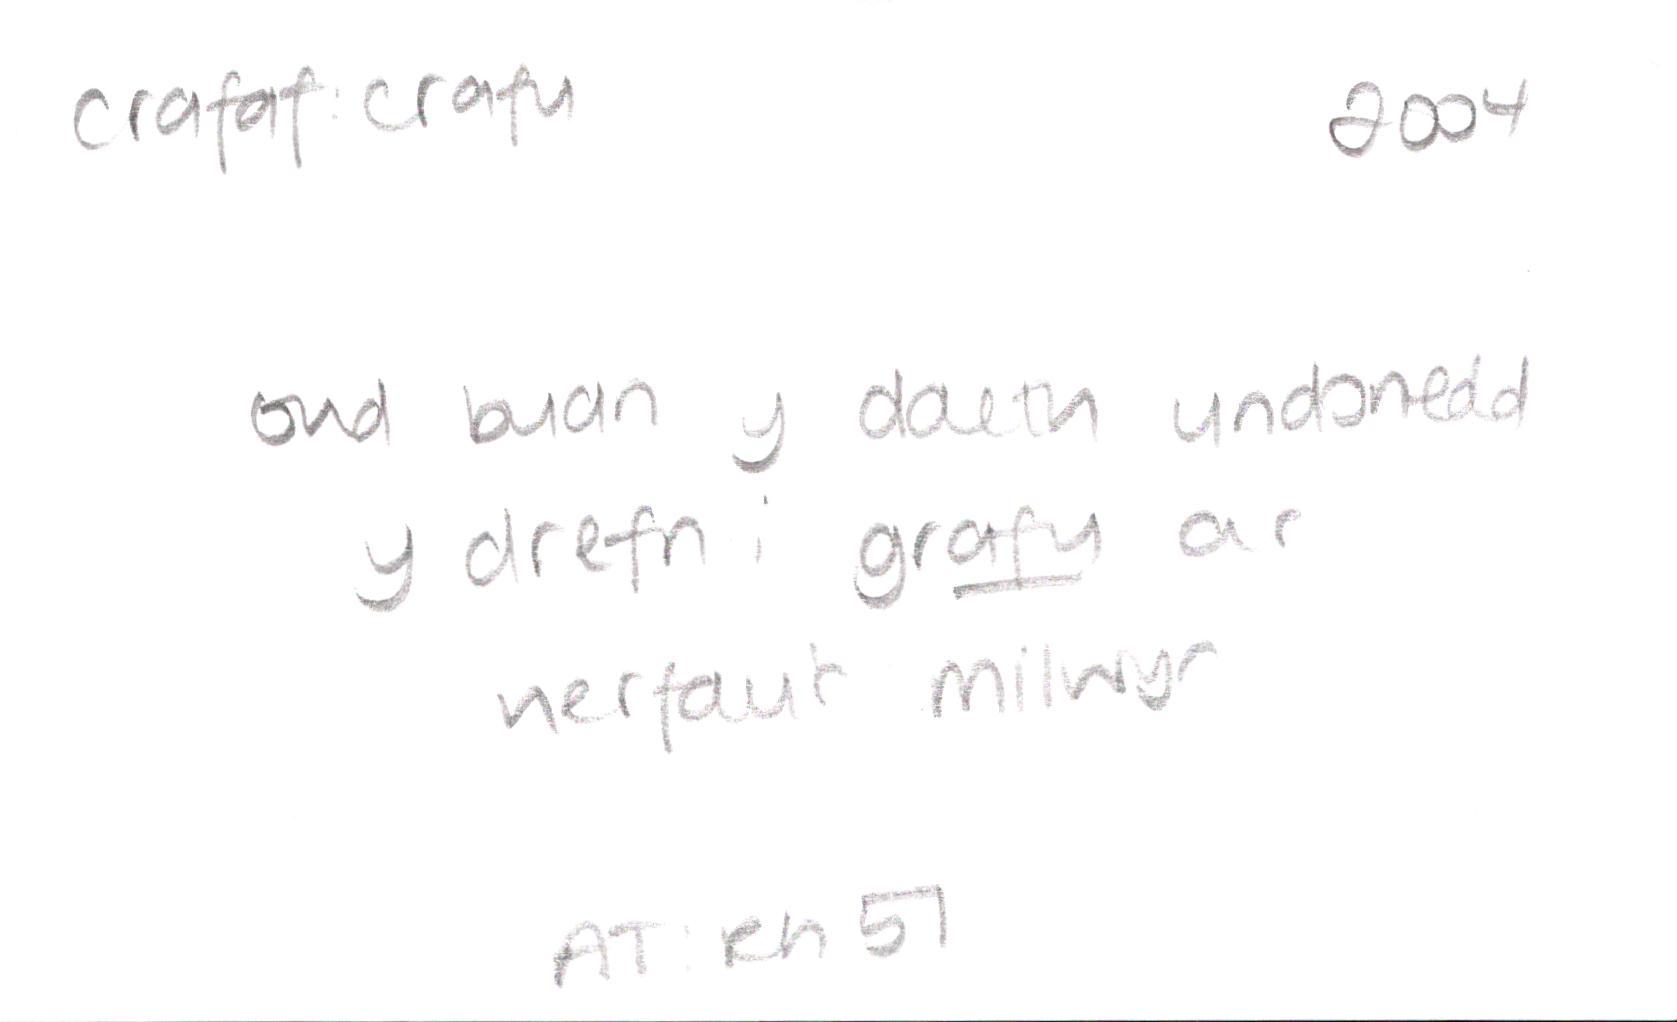 crafaf: crafu 2004
ond buan y daeth undonedd
y drefn i grafu ar
nerfau'r milwyr
AT: Rh 51